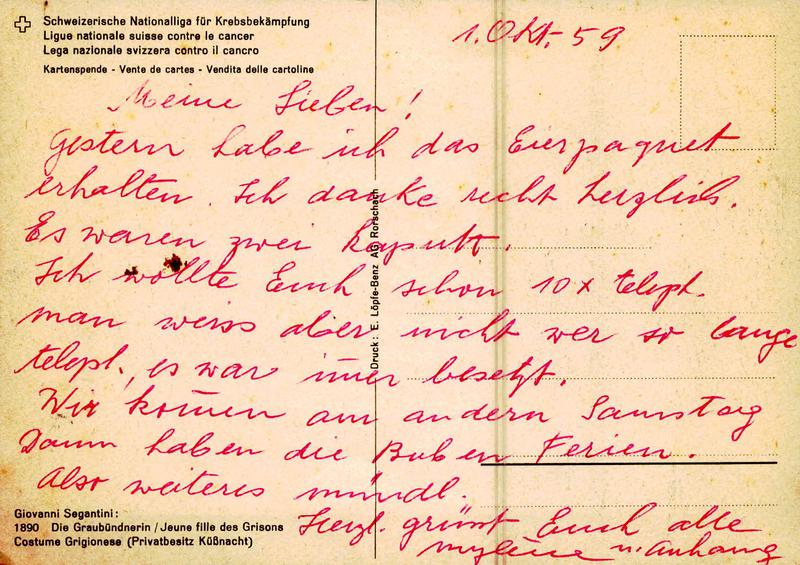 Schweizerische Nationalliga für Krebsbekämpfung
Ligue nationale suisse contre le cancer
Lega nazionale svizzera contro il cancro
Kartenspende - Vente de cartes - Vendita delle cartoline
1. Okt. 59
Meine Lieben!
Gestern habe ich das Eierpaquet
erhalten. Ich danke recht herzlich.
Es waren zwei kaputt.
Ich wollte Euch schon 10 x teleph.
man weiss aber nicht wer so lange
teleph., es war im̄er besetzt.
Wir kom̄en am andern Samstag
Dann haben die Buben Ferien.
Also weiteres mündl.
Herzl. grüsst Euch alle
Mylène u. Anhang
Druck: E. Löpfe-Benz AG Rorschach
Giovanni Segantini:
1890 Die Graubündnerin / Jeune fille des Grisons
Costume Grigionese (Privatbesitz Küßnacht)